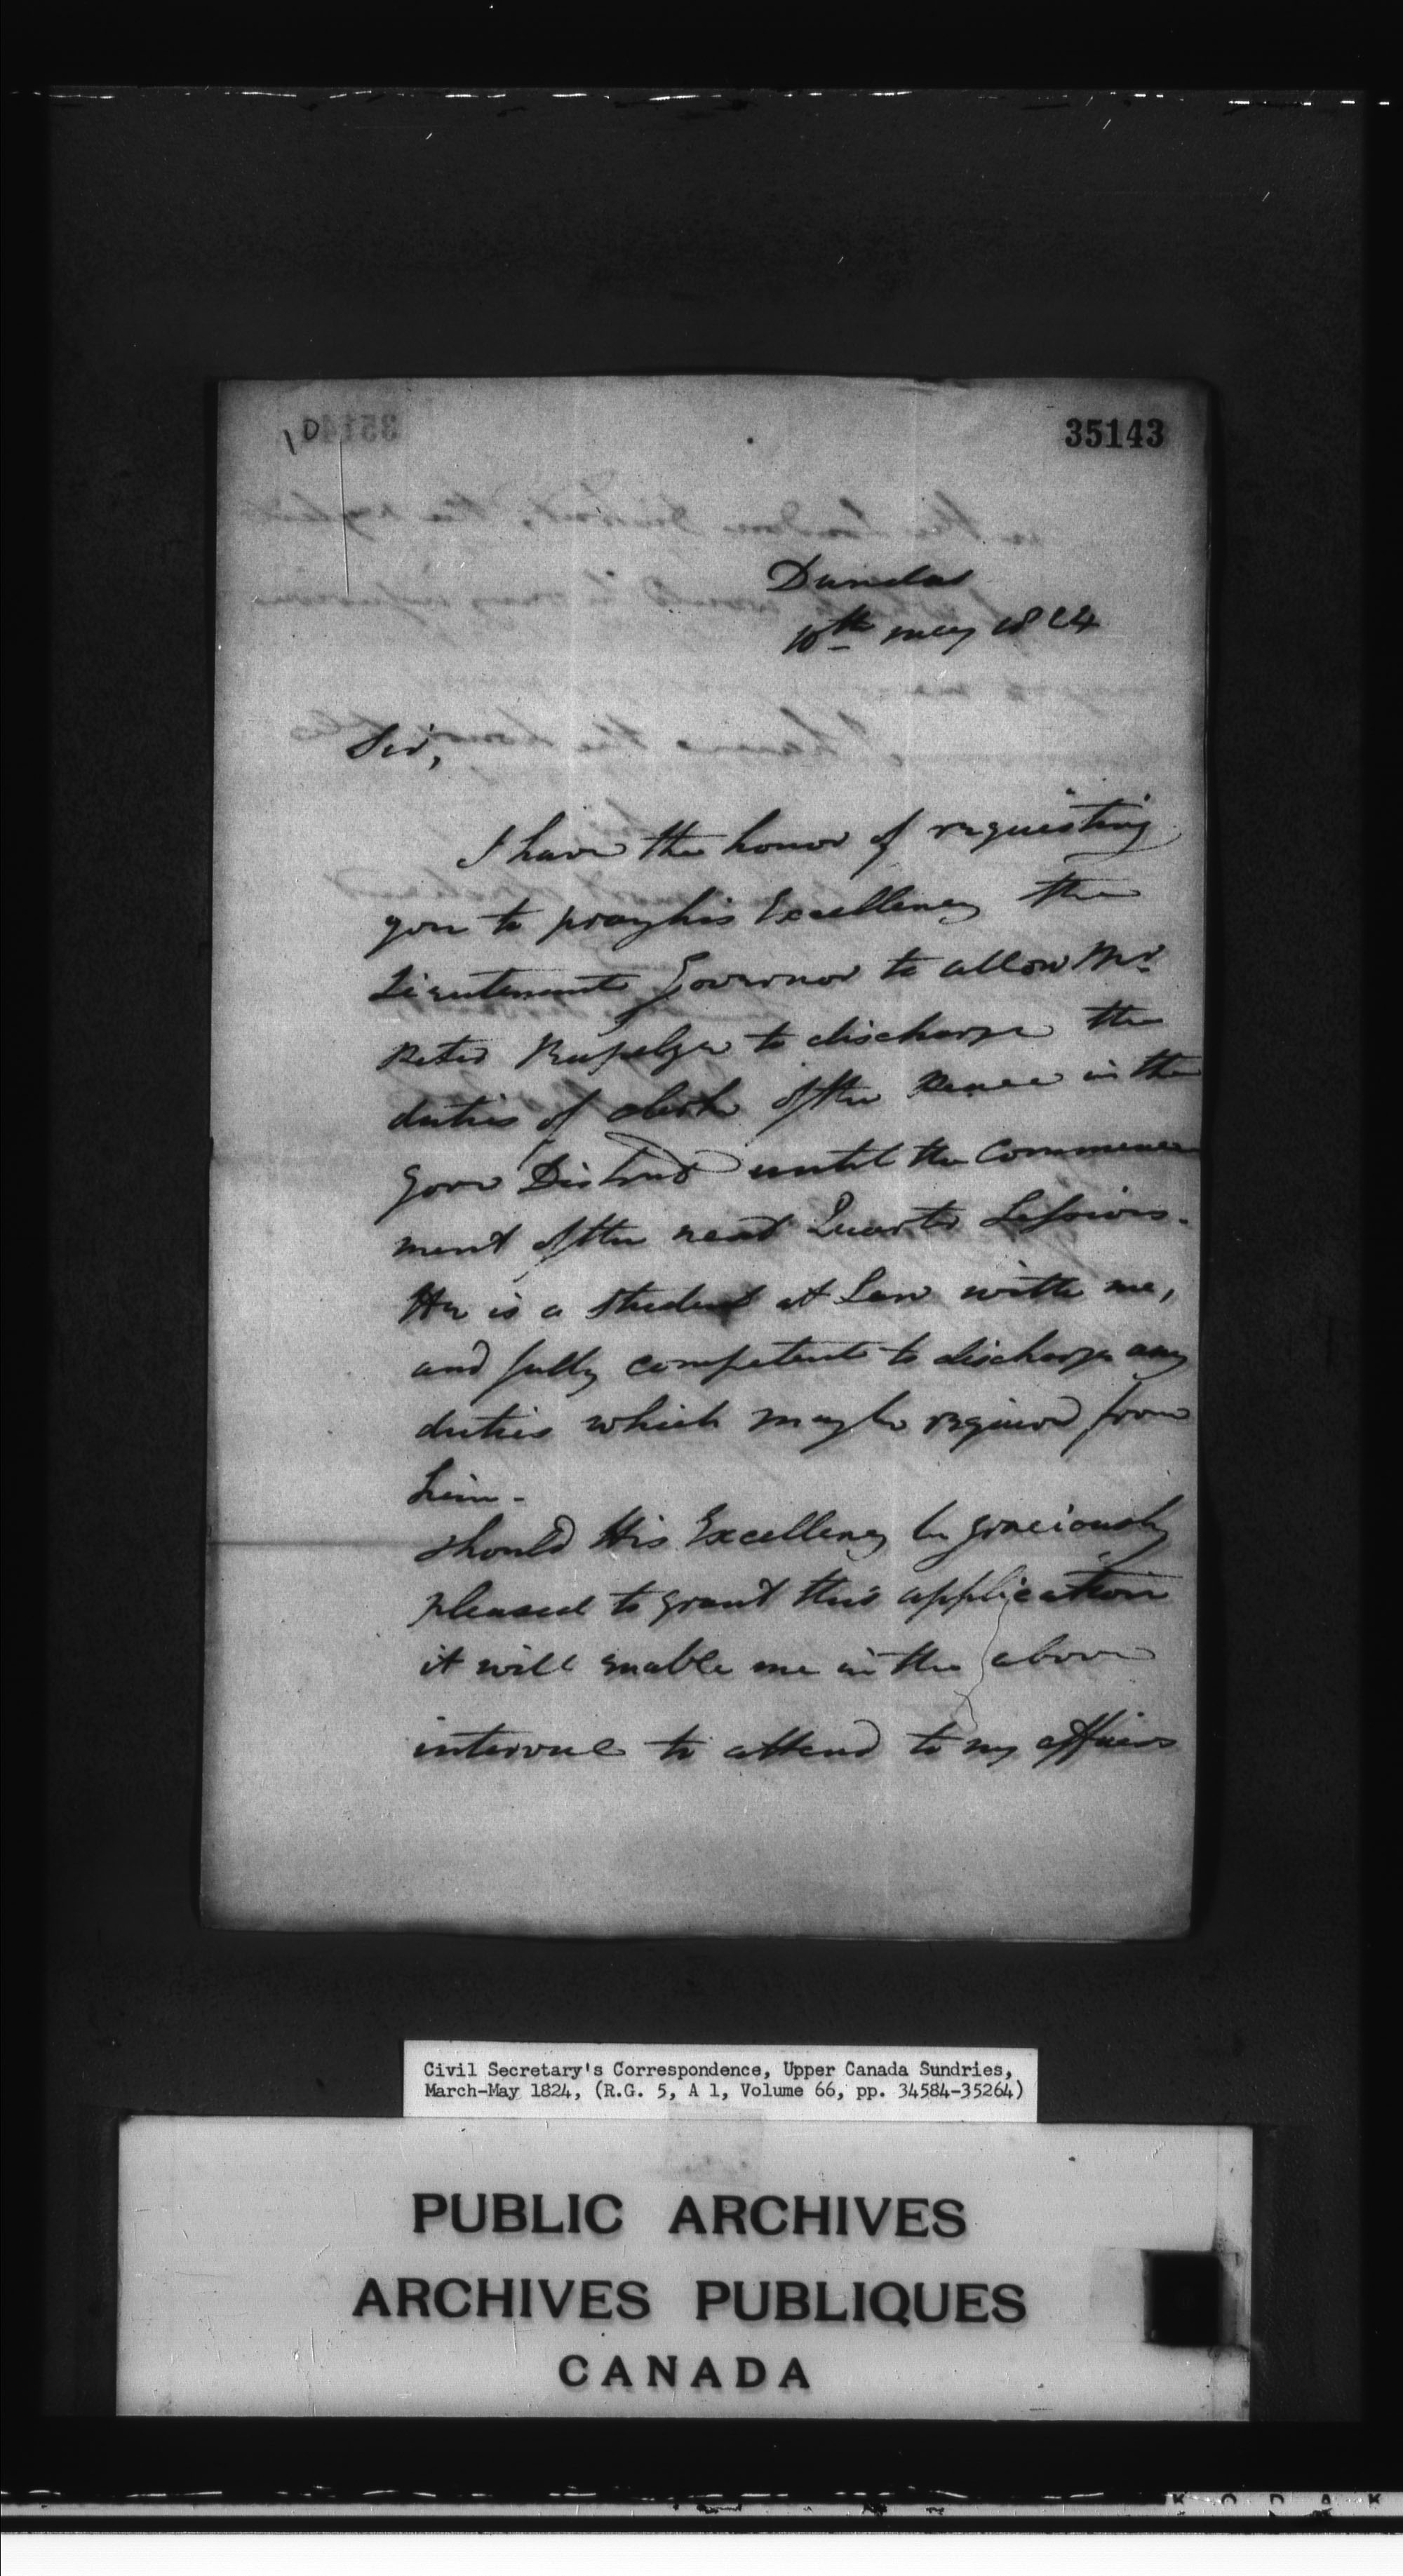 35143
Dundas
10th may 1824
Sir,
I have the honor of requesting
you to pray his Excellency the
Lieutenant Governor to allow Mr.
Peter to discharge the
duties of clerk of the Peace in the
Gore District until the Commence
ment of the next Quarter Sessions.
He is a Student at Law with me,
and fully competent to discharge any
duties which may be required from
him -
should His Excellency be graciously
pleased to grant this application
it will enable me in the above
interval to attend to my affairs
Civil Secretary's Correspondence, Upper Canada Sundries,
March-May 1824, (R.G. 5, A 1, Volume 66, pp. 34584-35264)
PUBLIC ARCHIVES
ARCHIVES PUBLIQUES
CANADA
KODAK